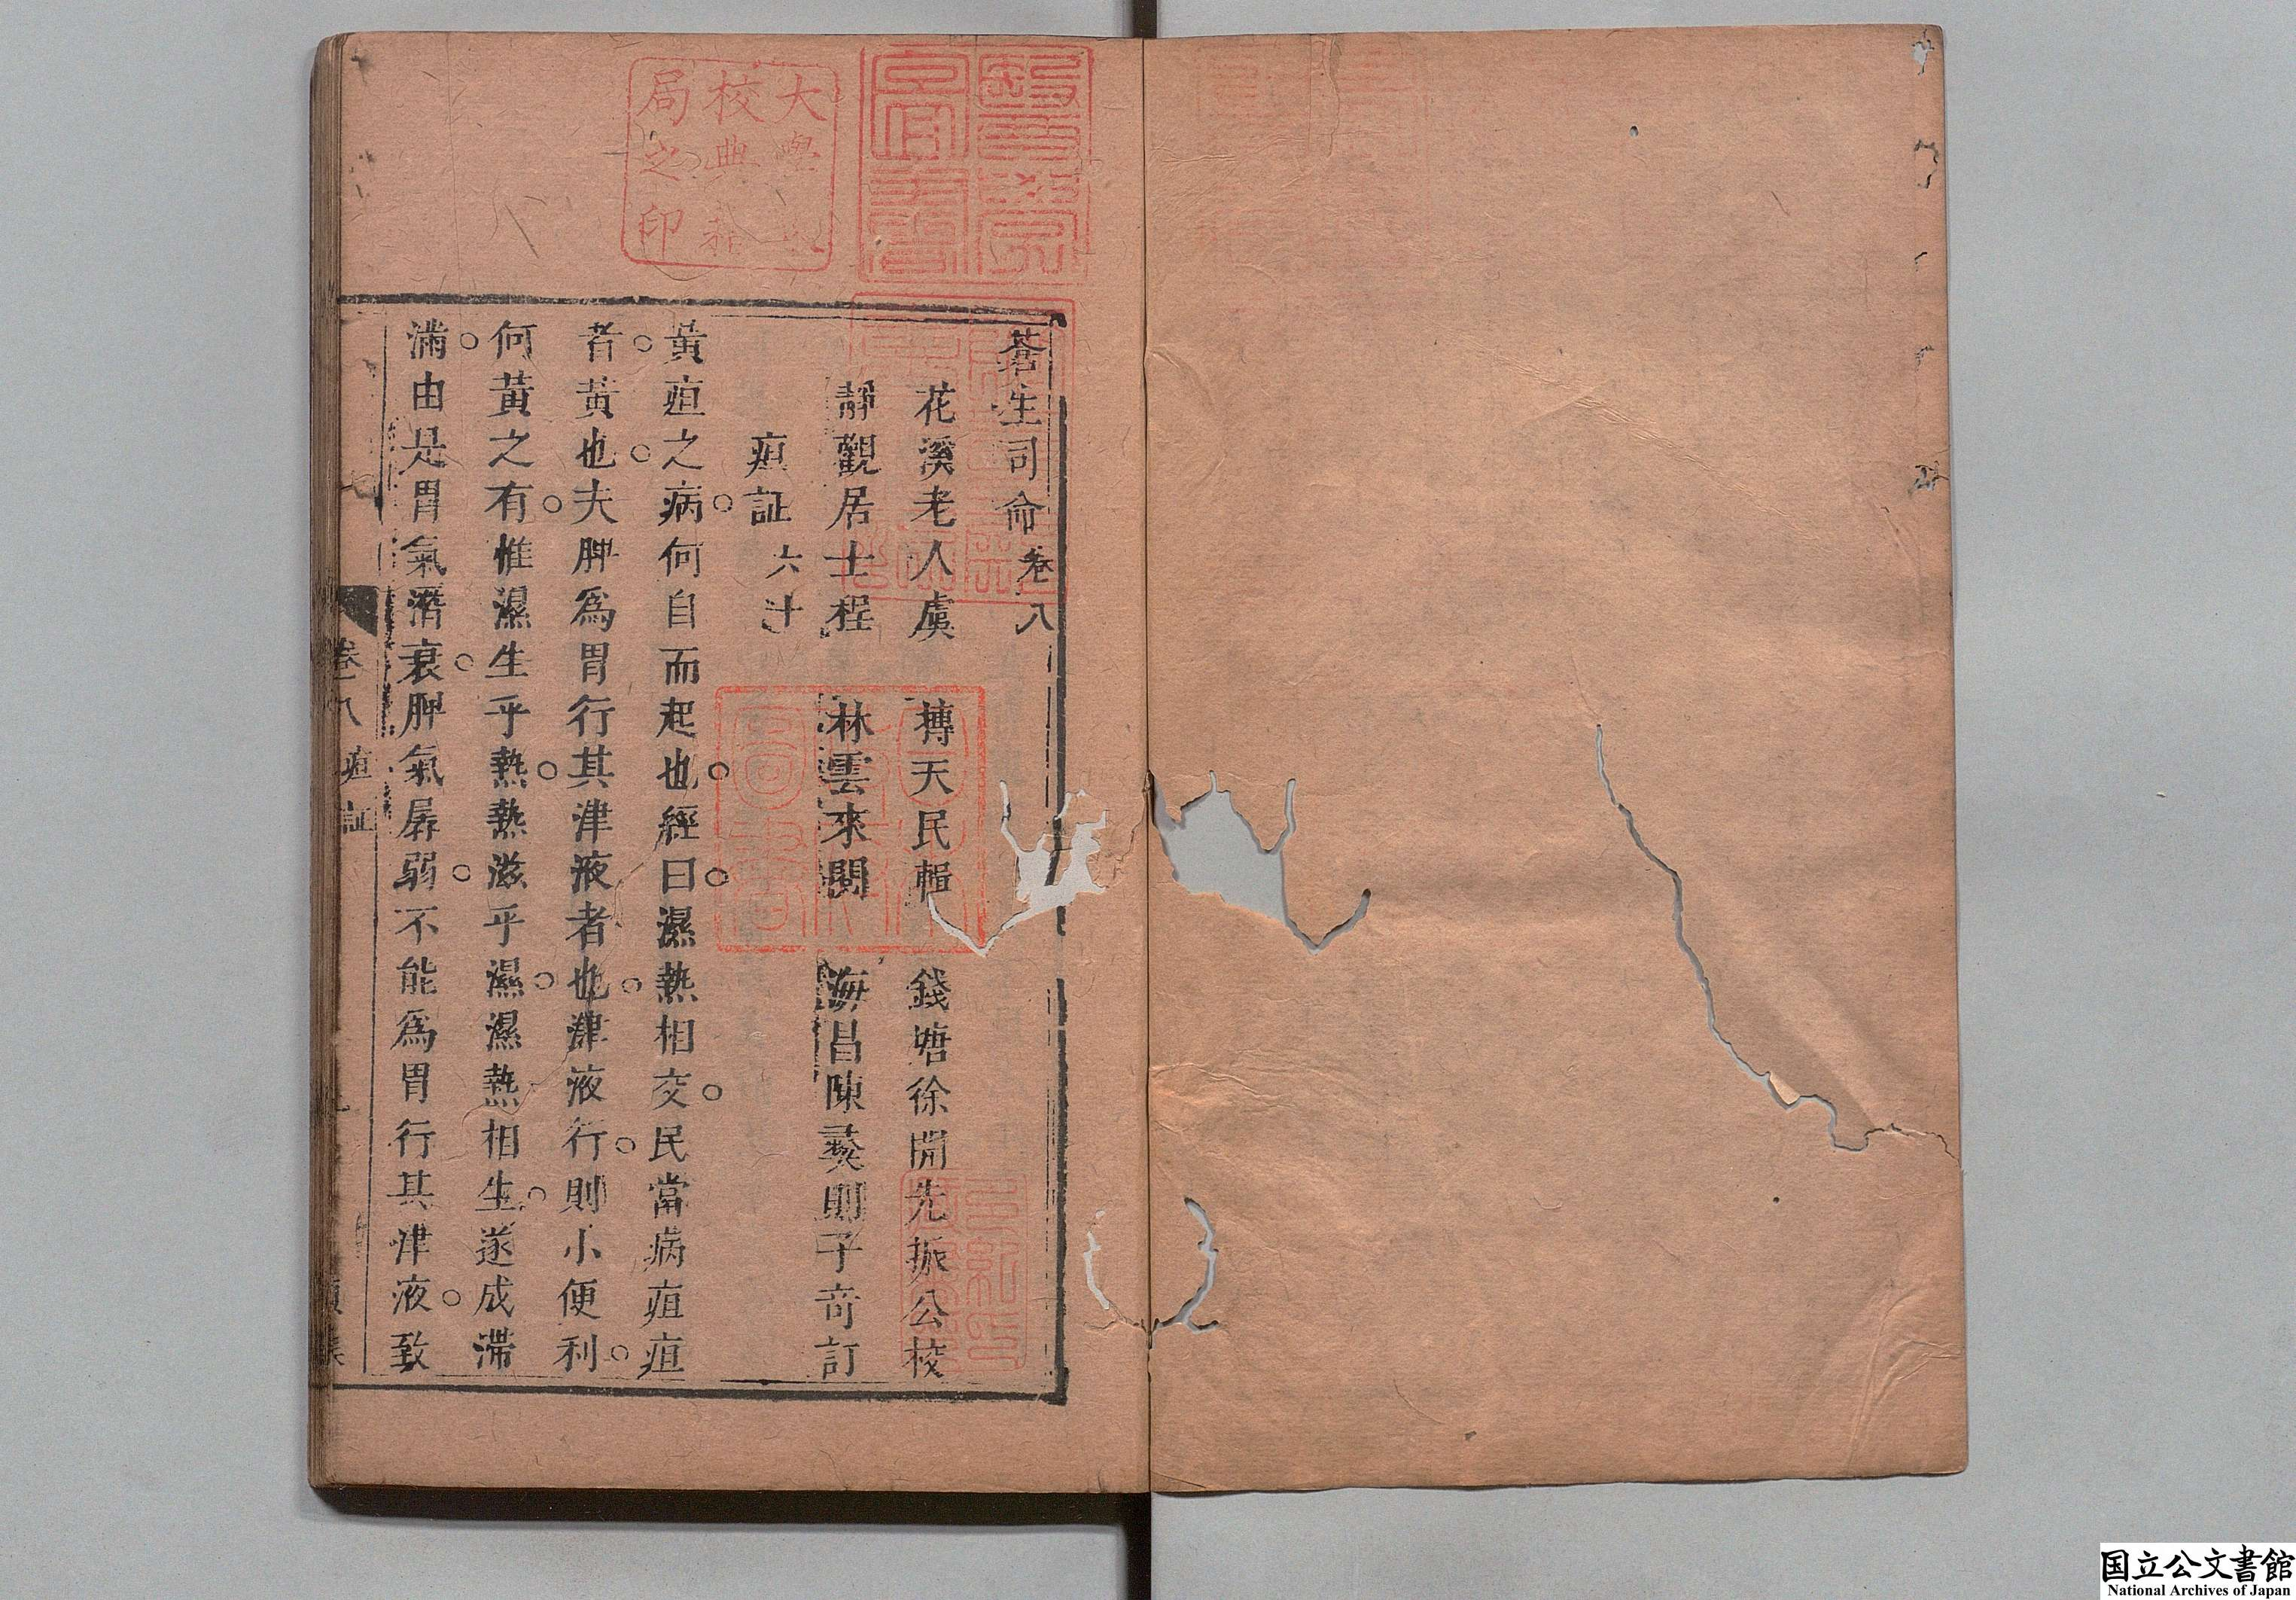 蒼生司命 卷八
花溪老人虞 摶天民輯 錢塘徐開先振公校
靜觀居士程 林雲來閱 海昌陳彛則子奇訂
疸証 六十
黃疸之病何自而起也經曰濕熱相交民當病疸疸
者黃也夫脾爲胃行其津液者也津液行則小便利
何黃之有惟濕生乎熱熱滋乎濕濕熱相生遂成滯
滿由是胃氣潛衰脾氣孱弱不能爲胃行其津液致
卷八 疸証
大學
校典籍
局之印
国立公文書館
National Archives of Japan